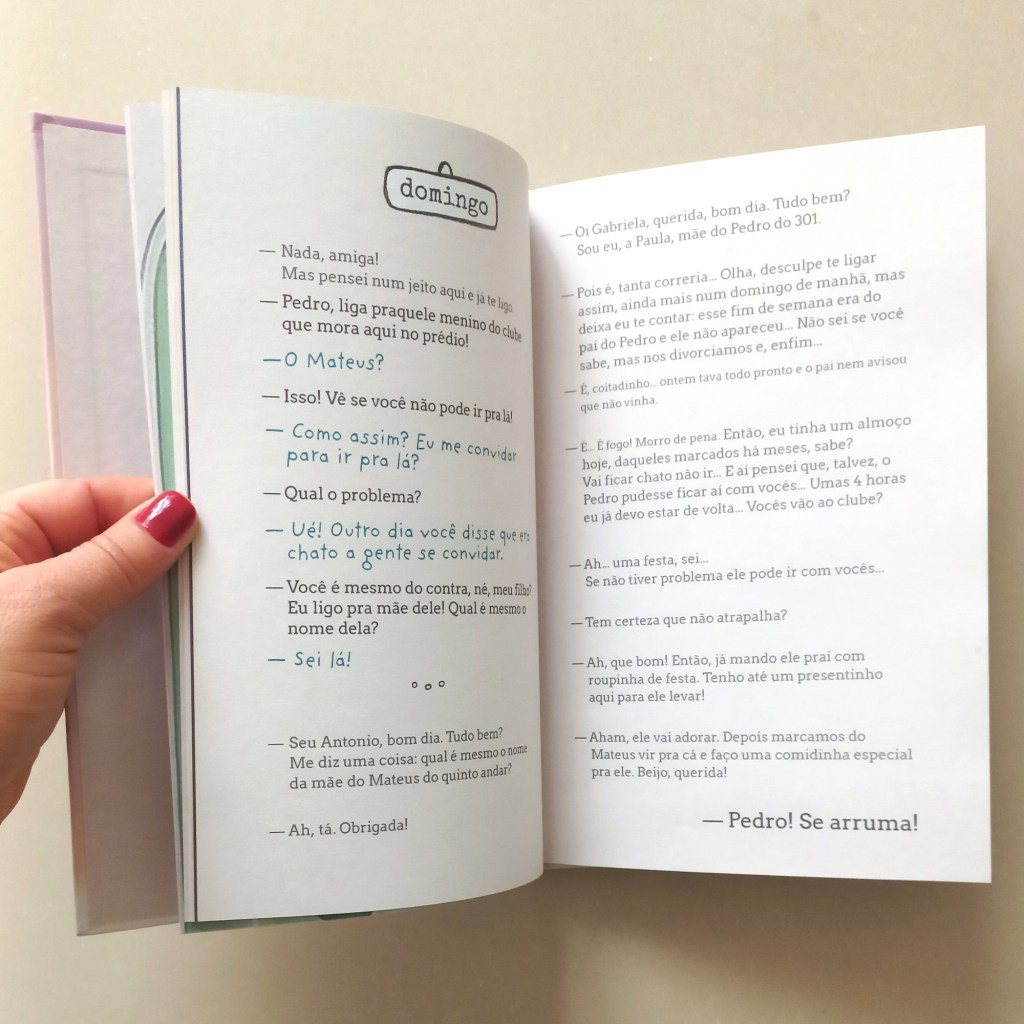 domingo
— Nada, amiga!
Mas pensei num jeito aqui e já te ligo.
— Pedro, liga praquele menino do clube
que mora aqui no prédio!
— O Mateus?
— Isso! Vê se você não pode ir pra lá!
— Como assim? Eu me convidar
para ir pra lá?
— Qual o problema?
— Ué! Outro dia você disse que era
chato a gente se convidar.
— Você é mesmo do contra, né, meu filho?
Eu ligo pra mãe dele! Qual é mesmo o
nome dela?
— Sei lá!
— Seu Antonio, bom dia. Tudo bem?
Me diz uma coisa: qual é mesmo o nome
da mãe do Mateus do quinto andar?
— Ah, tá. Obrigada!
— Oi Gabriela, querida, bom dia. Tudo bem?
Sou eu, a Paula, mãe do Pedro do 301.
— Pois é, tanta correria... Olha, desculpe te ligar
assim, ainda mais num domingo de manhã, mas
deixa eu te contar: esse fim de semana era do
pai do Pedro e ele não apareceu... Não sei se você
sabe, mas nos divorciamos e, enfim...
— É, coitadinho... ontem tava todo pronto e o pai nem avisou
que não vinha.
— É... É fogo! Morro de pena. Então, eu tinha um almoço
hoje, daqueles marcados há meses, sabe?
Vai ficar chato não ir... E aí pensei que, talvez, o
Pedro pudesse ficar aí com vocês... Umas 4 horas
eu já devo estar de volta... Vocês vão ao clube?
— Ah... uma festa, sei...
Se não tiver problema ele pode ir com vocês...
— Tem certeza que não atrapalha?
— Ah, que bom! Então, já mando ele praí com
roupinha de festa. Tenho até um presentinho
aqui para ele levar!
— Aham, ele vai adorar. Depois marcamos do
Mateus vir pra cá e faço uma comidinha especial
pra ele. Beijo, querida!
— Pedro! Se arruma!